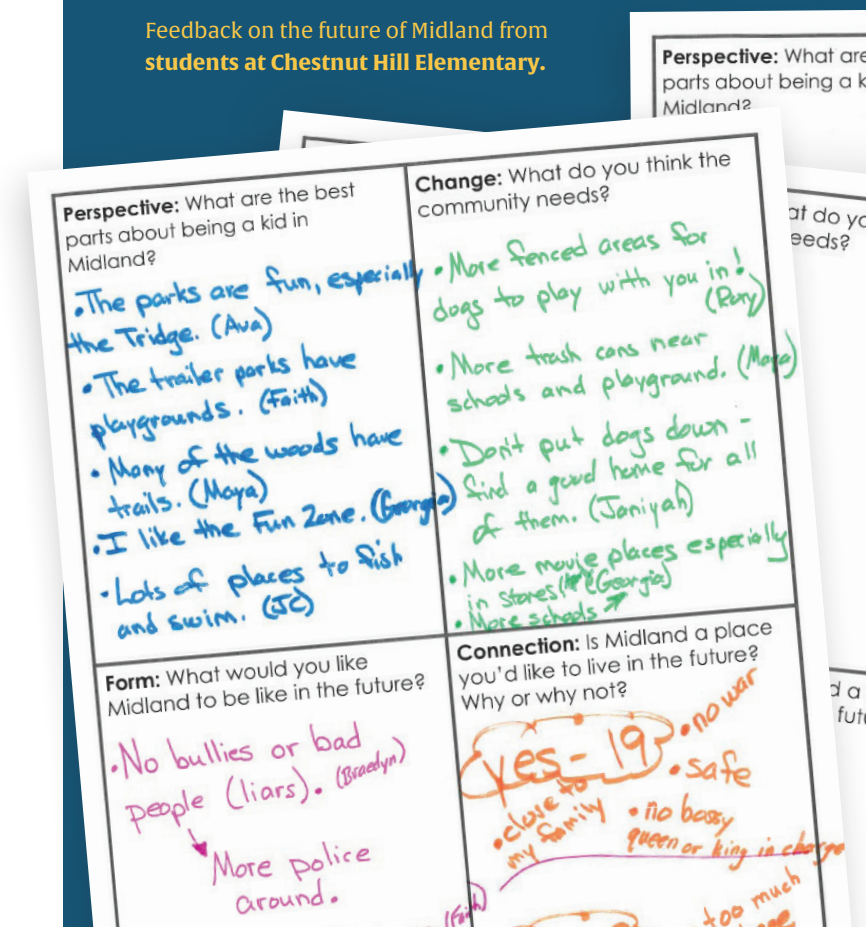 Feedback on the future of Midland from
students at Chestnut Hill Elementary.
Perspective: What are
parts about being a k
Midland?
at do yo
eeds?
Perspective: What are the best
parts about being a kid in
Midland?
• The parks are fun, especially
the Tridge. (Ava)
• The trailer parks have
playgrounds. (Faith)
• Many of the woods have
trails. (Maya)
• I like the Fun Zone. (Georgia)
• Lots of places to fish
and swim. (JC)
Change: What do you think the
community needs?
• More fenced areas for
dogs to play with you in!
(Rory)
• More trash cans near
schools and playground. (Maya)
• Don't put dogs down -
find a good home for all
of them. (Janiyah)
• More movie places especially
in stores! (Georgia)
• More schools
Form: What would you like
Midland to be like in the future?
• No bullies or bad
people (liars). (Braedyn)
More police
around.
(Faith)
Connection: Is Midland a place
you'd like to live in the future?
Why or why not?
yes - 19
• no war
• safe
• close to
my family
• no bossy
queen or king in charge
too much
d a
futu